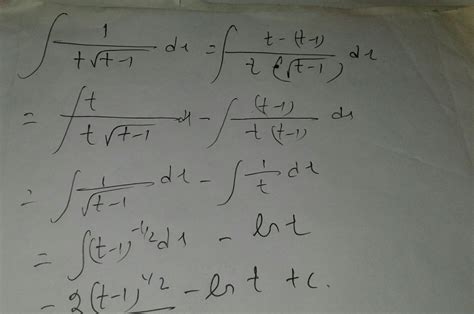 ∫ 1/(t√(t-1)) dt = ∫ (t-(t-1))/(t(√(t-1))) dt
= ∫ t/(t√(t-1)) dt - ∫ (t-1)/(t(t-1)) dt
= ∫ 1/√(t-1) dt - ∫ 1/t dt
= ∫(t-1)^(-1/2) dt - ln t
= 2(t-1)^(1/2) - ln t + c.